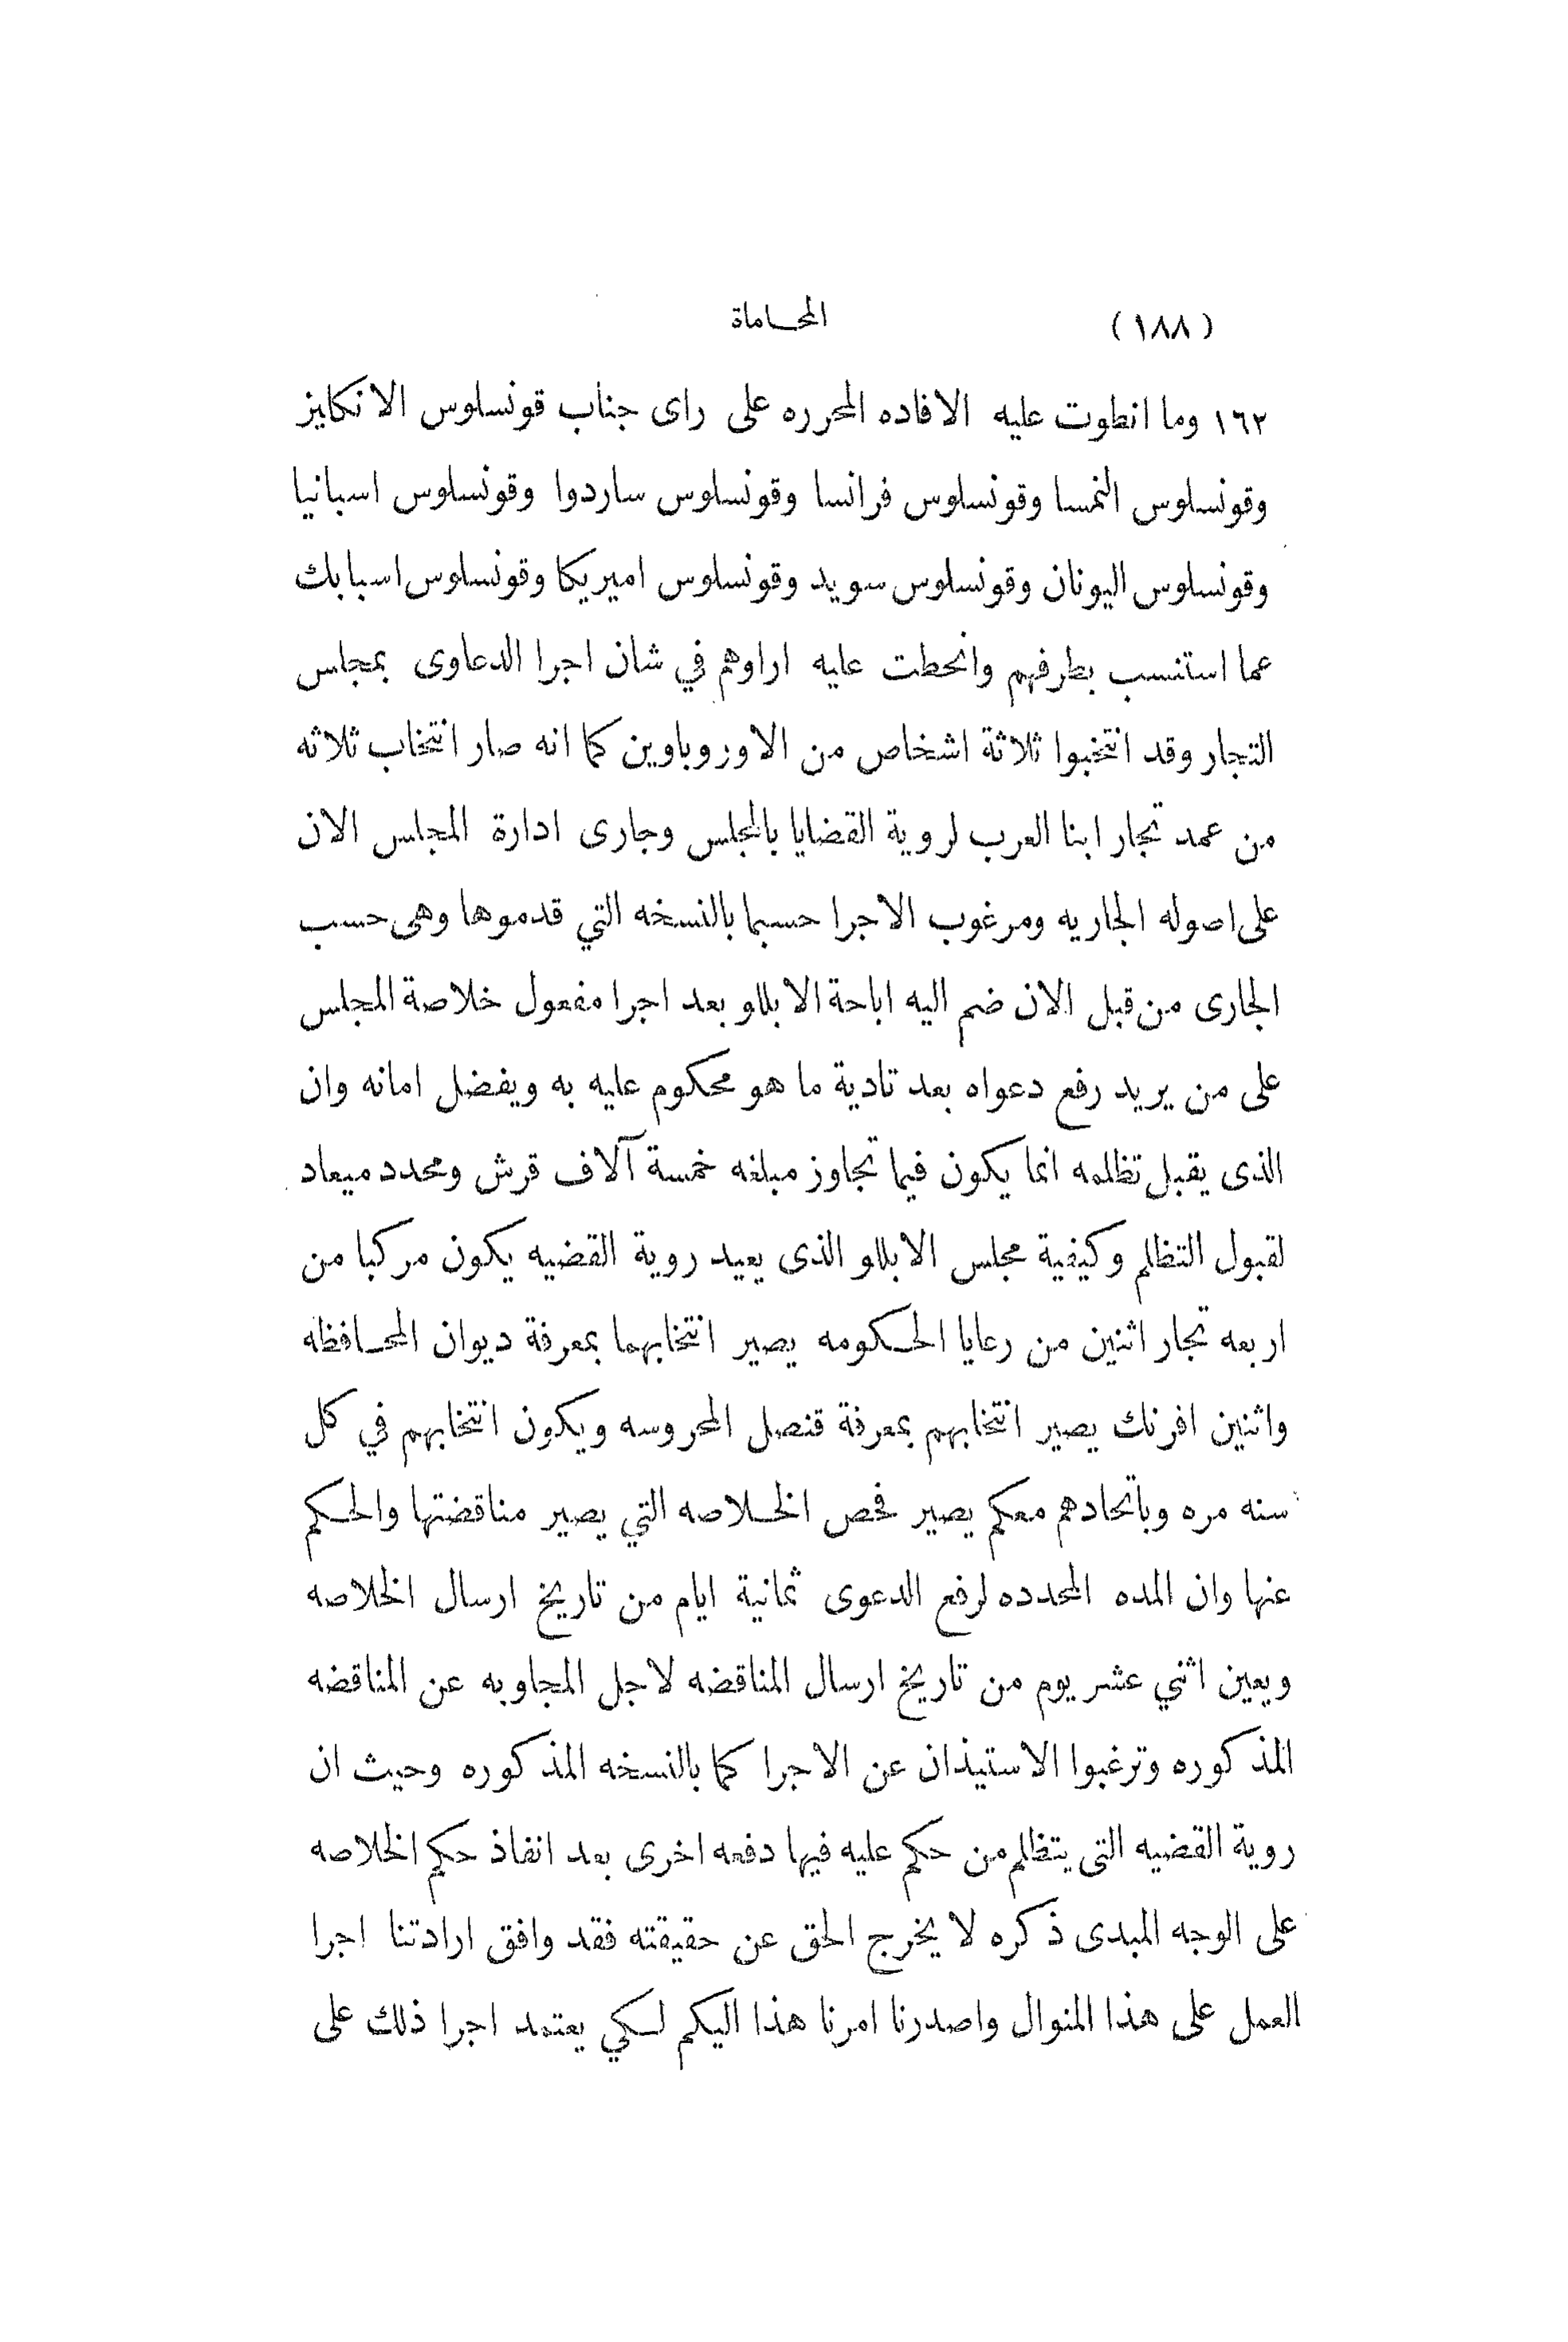 (١٨٨) المحاماة
١٦٢ وما انطوت عليه الافاده المحرره على راى جناب قونسلوس الانكليز
وقونسلوس النمسا وقونسلوس فرانسا وقونسلوس ساردوا وقونسلوس اسبانيا
وقونسلوس اليونان وقونسلوس سويد وقونسلوس اميريكا وقونسلوس اسبابك
عما استنسب بطرفهم وانحطت عليه اراوهم في شان اجرا الدعاوى بمجلس
التجار وقد انتخبوا ثلاثة اشخاص من الاوروباوين كما انه صار انتخاب ثلاثه
من عمد تجار ابنا العرب لروية القضايا بالمجلس وجارى ادارة المجلس الان
على اصوله الجاريه ومرغوب الاجرا حسبما بالنسخه التي قدموها وهى حسب
الجارى من قبل الان ضم اليه اباحة الابللو بعد اجرا مفعول خلاصة المجلس
على من يريد رفع دعواه بعد تادية ما هو محكوم عليه به ويفضل امانه وان
الذى يقبل تظلمه انما يكون فيما تجاوز مبلغه خمسة آلاف قرش ومحدد ميعاد
لقبول التظلم وكيفية مجلس الابللو الذى يعيد روية القضيه يكون مركبا من
اربعه تجار اثنين من رعايا الحكومه يصير انتخابهما بمعرفة ديوان المحافظه
واثنين افرنك يصير انتخابهم بمعرفة قنصل المحروسه ويكون انتخابهم في كل
سنه مره وباتحادهم معكم يصير فحص الخلاصه التي يصير مناقضتها والحكم
عنها وان المده المحدده لرفع الدعوى ثمانية ايام من تاريخ ارسال الخلاصه
ويعين اثني عشر يوم من تاريخ ارسال المناقضه لاجل المجاوبه عن المناقضه
المذكوره وترغبوا الاستيذان عن الاجرا كما بالنسخه المذكوره وحيث ان
روية القضيه التى يتظلم من حكم عليه فيها دفعه اخرى بعد انفاذ حكم الخلاصه
على الوجه المبدى ذكره لا يخرج الحق عن حقيقته فقد وافق ارادتنا اجرا
العمل على هذا المنوال واصدرنا امرنا هذا اليكم لكي يعتمد اجرا ذلك على